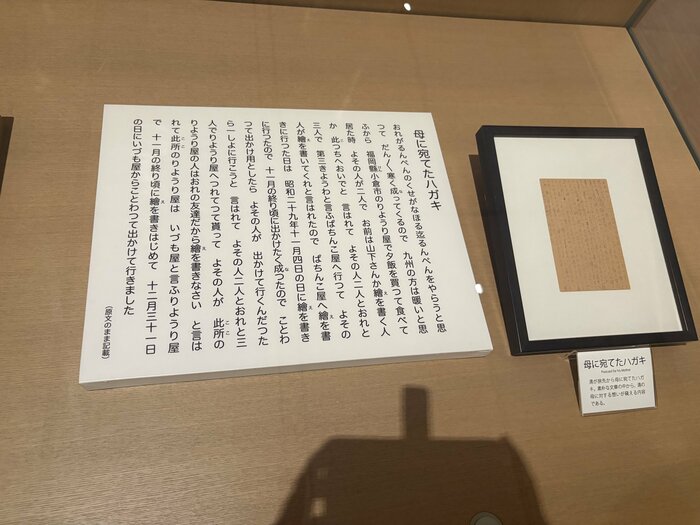 母に宛てたハガキ
おれがるんぺんのくせがなほる迄るんぺんをやらうと思
つて だん〳〵寒く成つてくるので 九州の方は暖いと思
ふから 福岡縣小倉市のりようり屋で夕飯を買つて食べて
居た時 よその人が二人で お前は山下さんか繪を書く人
か 此つちへおいでと 言はれて よその人二人とおれと
三人で 第三きようわと言ふぱちんこ屋へ行つて よその
人が繪を書いてくれと言はれたので ぱちんこ屋へ繪を書
きに行つた日は 昭和二十九年十一月四日の日に繪を書き
に行つたので 十一月の終り頃に出かけたく成つたので ことわ
つて出かけ用としたら よその人が 出かけて行くんだつた
ら一しよに行こうと 言はれて よその人二人とおれと三
人でりようり屋へつれてつて貰って よその人が 此所の
りようり屋の人はおれの友達だから繪を書きなさい と言は
れて此所のりようり屋は いづも屋と言ふりようり屋
で 十一月の終り頃に繪を書きはじめて 十二月三十一日
の日にいづも屋からことわつて出かけて行きました
（原文のまま記載）
母に宛てたハガキ
Postcard to his Mother
清が旅先から母に宛てたハガ
キ。素朴な文章の中から、清の
母に対する想いが窺える内容
である。